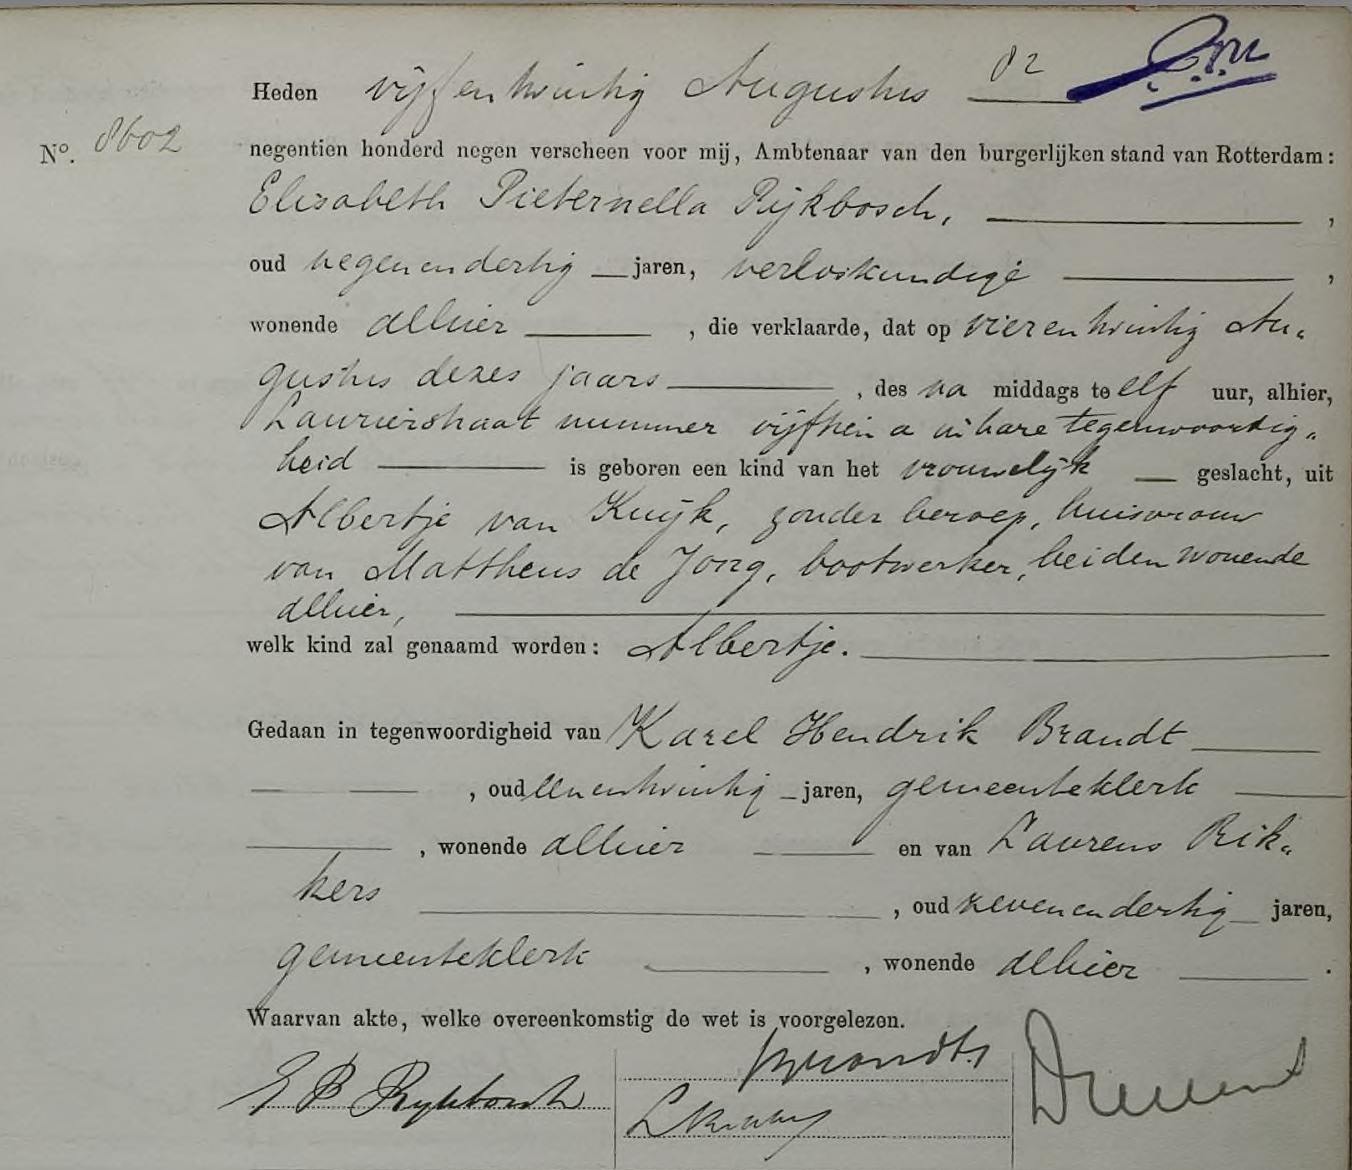 82
Heden vijfentwintig Augustus
No. 8602
negentien honderd negen verscheen voor mij, Ambtenaar van den burgerlijken stand van Rotterdam:
Elisabeth Pieternella Rijkbosch, ,
oud negenendertig jaren, verloskundige ,
wonende alhier , die verklaarde, dat op vierentwintig Au„
gustus dezes jaars , des na middags te elf uur, alhier,
Laurierstraat nummer vijftien a in hare tegenwoordig„
heid is geboren een kind van het vrouwelijk geslacht, uit
Albertje van Kuijk, zonder beroep, huisvrouw
van Mattheus de Jong, bootwerker, beiden wonende
alhier,
welk kind zal genaamd worden: Albertje.
Gedaan in tegenwoordigheid van Karel Hendrik Brandt
, oud eenentwintig jaren, gemeenteklerk
, wonende alhier en van Laurens Rik„
kers , oud zevenendertig jaren,
gemeenteklerk , wonende alhier .
Waarvan akte, welke overeenkomstig de wet is voorgelezen.
E P Rykbosch
Brandt